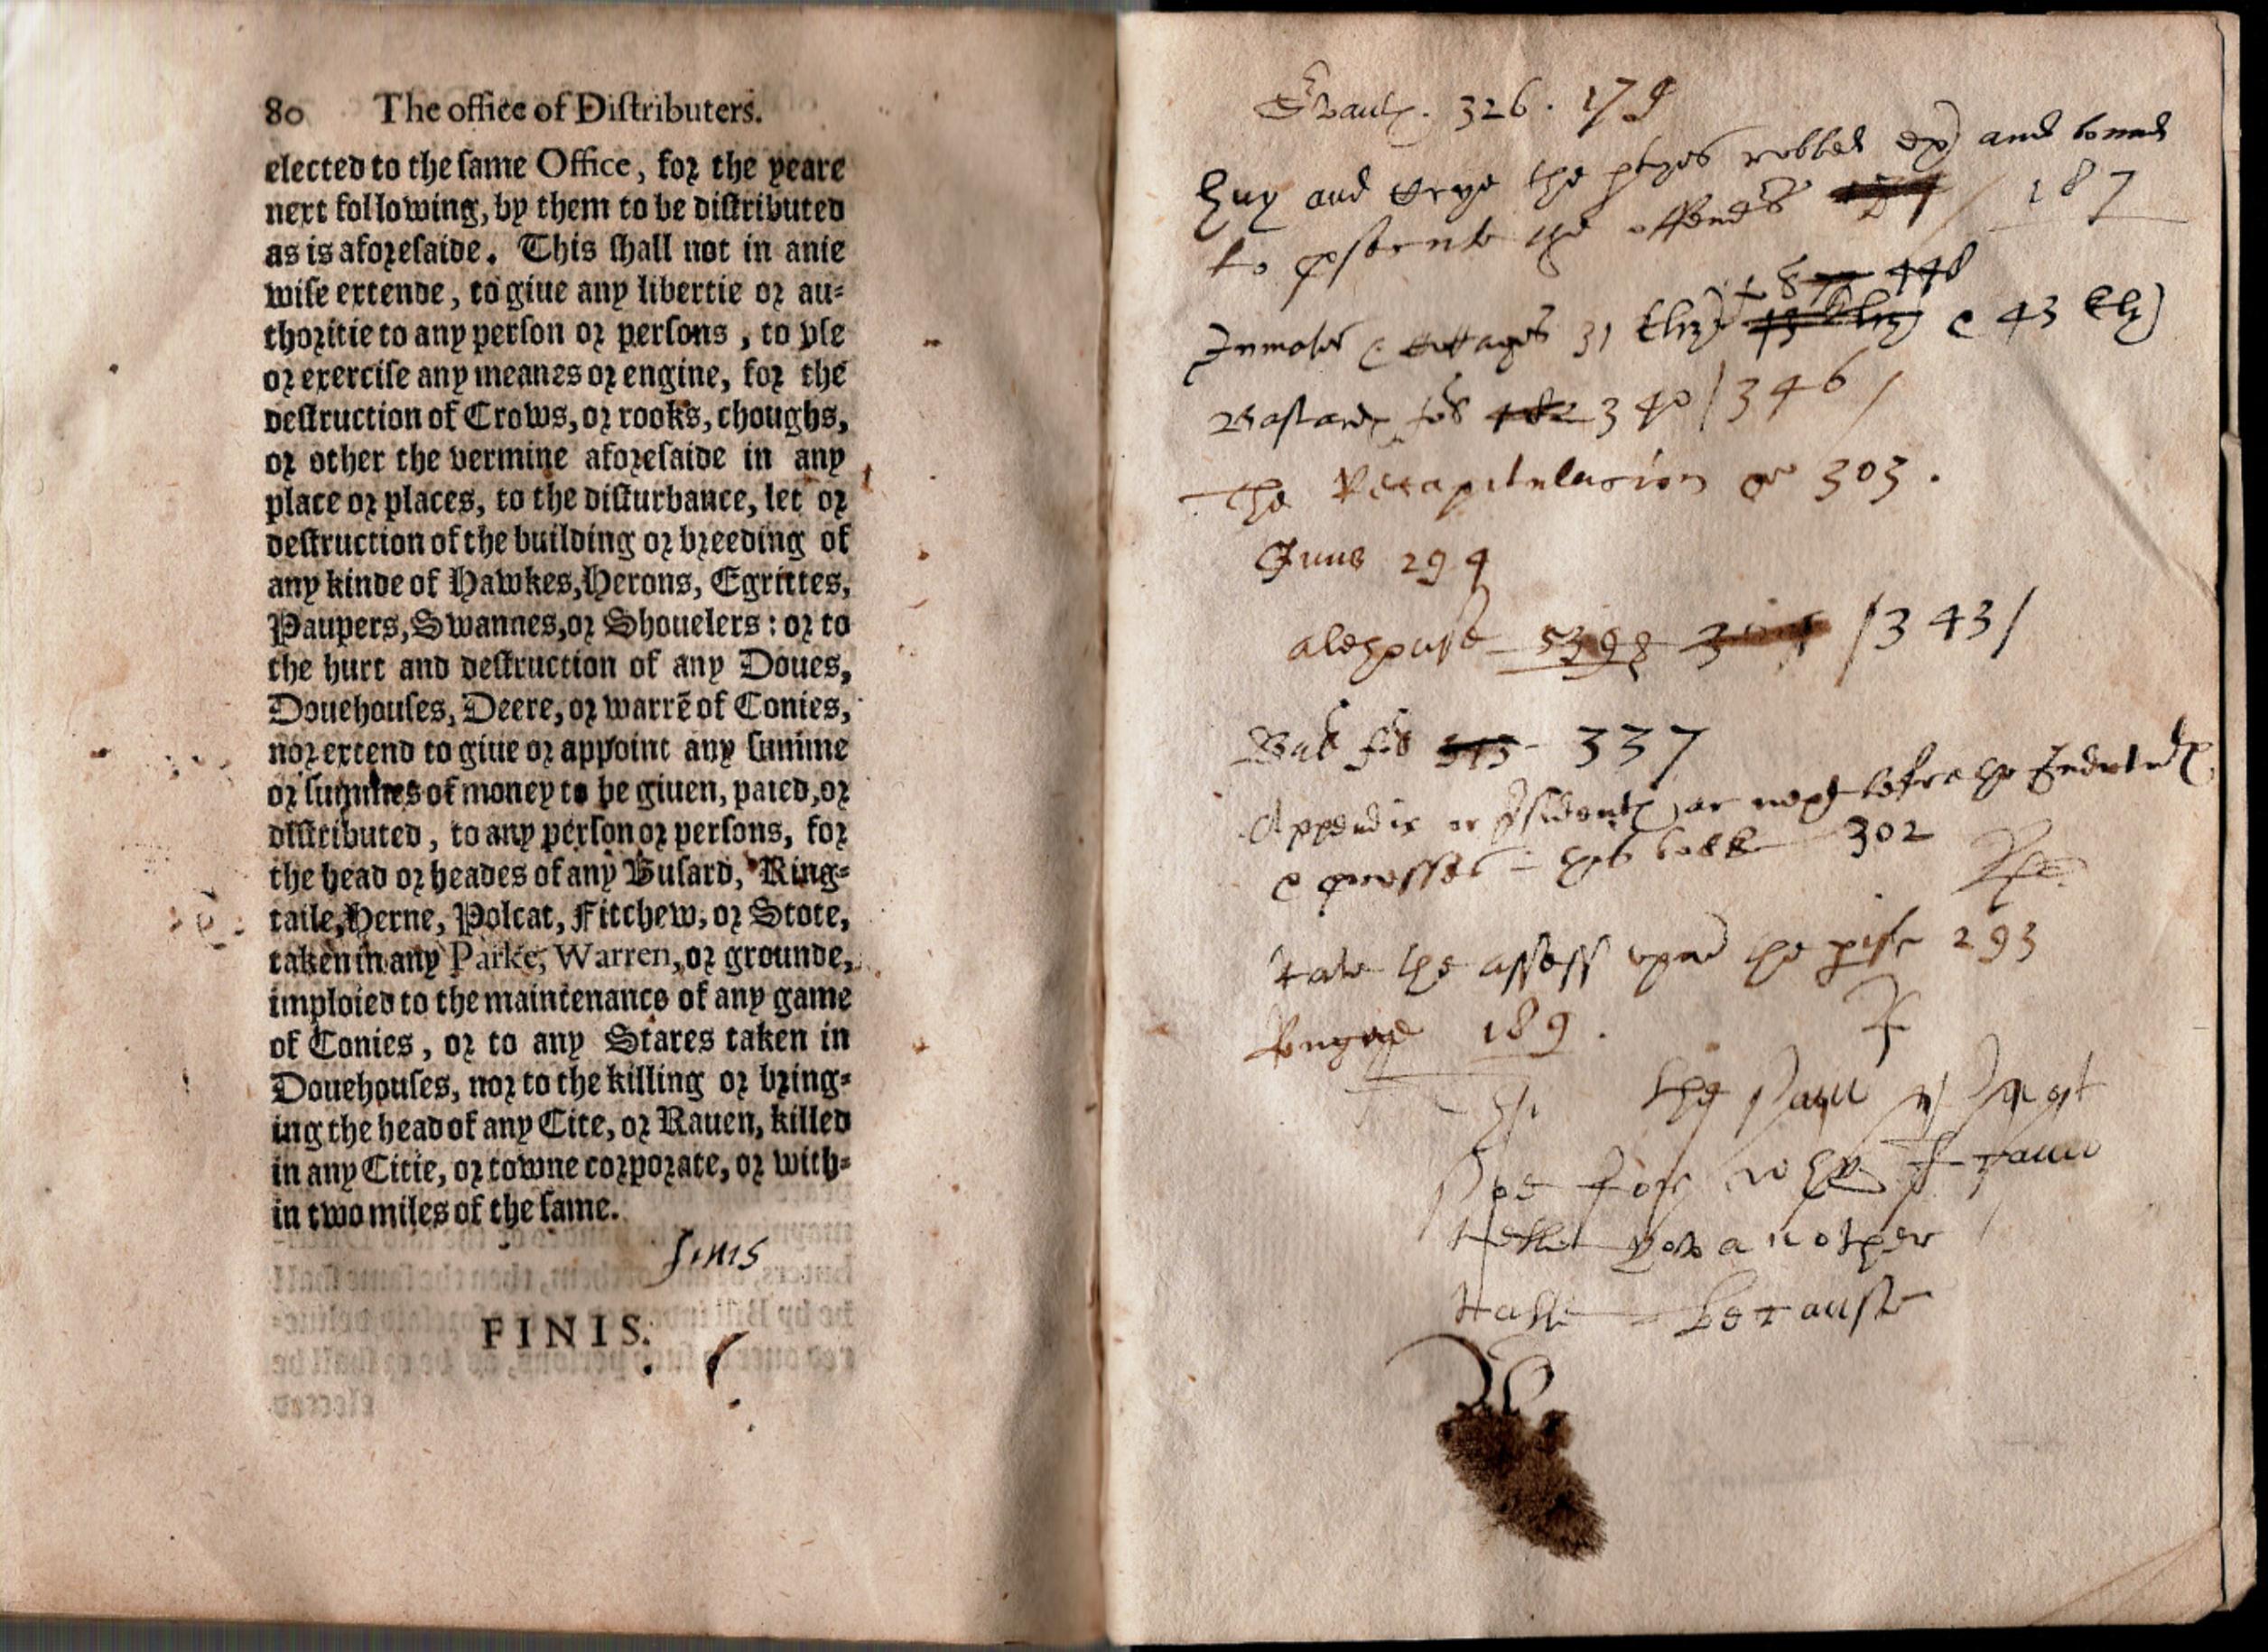 80 The office of Diſtributers.
elected to the ſame Office, for the yeare
next following, by them to be diſtributed
as is aforeſaide. This ſhall not in anie
wiſe extende, to giue any libertie or au-
thoritie to any perſon or perſons, to vſe
or exerciſe any meanes or engine, for the
deſtruction of Crows, or rooks, choughs,
or other the vermine aforeſaide in any
place or places, to the diſturbance, let or
deſtruction of the building or breeding of
any kinde of Hawkes, Herons, Egrittes,
Paupers, Swannes, or Shouelers: or to
the hurt and deſtruction of any Doues,
Douehouſes, Deere, or warrē of Conies,
nor extend to giue or appoint any ſumme
or ſummes of money to be giuen, paied, or
diſtributed, to any perſon or perſons, for
the head or heades of any Buſard, Ring-
taile, Herne, Polcat, Fitchew, or Stote,
taken in any Parke, Warren, or grounde,
imploied to the maintenance of any game
of Conies, or to any Stares taken in
Douehouſes, nor to the killing or bring-
ing the head of any Cite, or Rauen, killed
in any Citie, or towne corporate, or with-
in two miles of the ſame.
finis
FINIS.
326. 179
Huy and Crye the robbed and bound
to the 187
448
Inmates Cottages 31 Eliz 43 Eliz
Bastard 340 / 346 /
The Recapitulacion 303.
Guns 294
alehouse 343 /
337
Appendix or before the
booke 302
rate the assess upon the 293
189.
The
for why I
tell you another
talle because